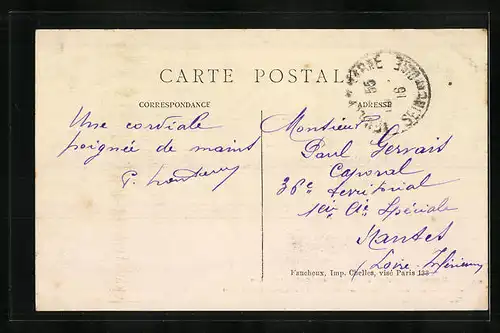 CARTE POSTALE
CORRESPONDANCE
ADRESSE
Une cordiale
poignée de mains
P.
Monsieur
Paul Gervais
Caporal
36e territorial
1ère Cie Spéciale
Nantes
Loire-Inférieure
Faucheux, Imp. Chelles, visé Paris 133